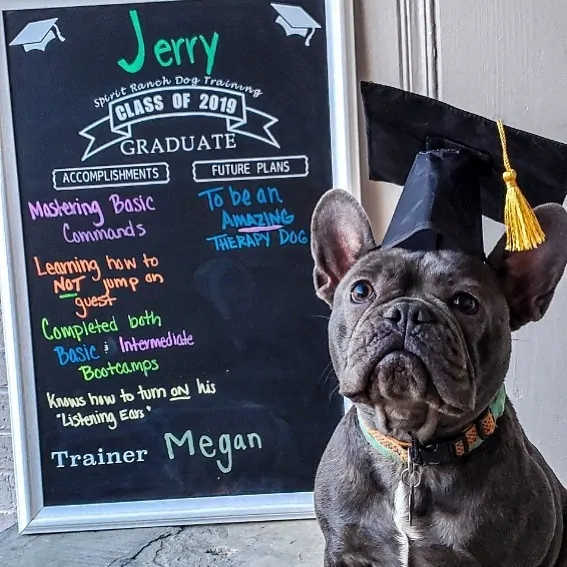 Jerry
Spirit Ranch Dog Training
CLASS OF 2019
GRADUATE
ACCOMPLISHMENTS
Mastering Basic
Commands
Learning how to
NOT jump on
guest
Completed both
Basic & Intermediate
Bootcamps
Knows how to turn on his
"Listening Ears"
Trainer Megan
FUTURE PLANS
To be an
AMAZING
THERAPY DOG